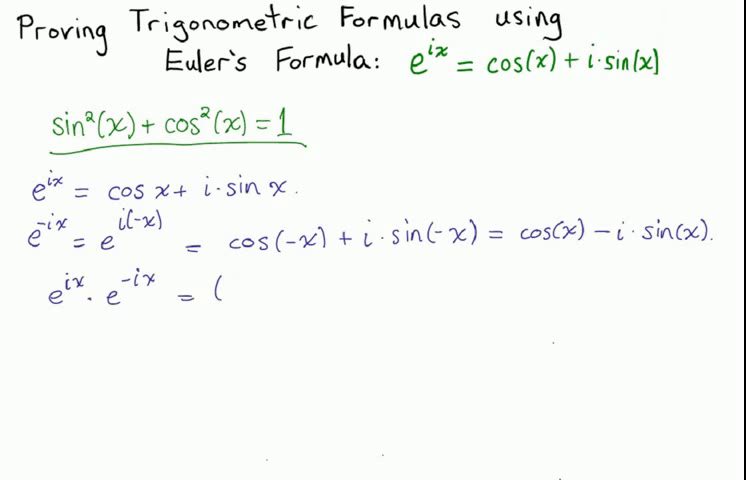 Proving Trigonometric Formulas using
Euler's Formula: e^{ix} = cos(x) + i·sin(x)
sin²(x) + cos²(x) = 1
e^{ix} = cos x + i·sin x.
e^{-ix} = e^{i(-x)} = cos(-x) + i·sin(-x) = cos(x) - i·sin(x).
e^{ix}·e^{-ix} = (